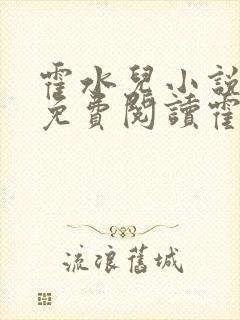 霍水兒小說
免費閱讀霍
流浪舊城